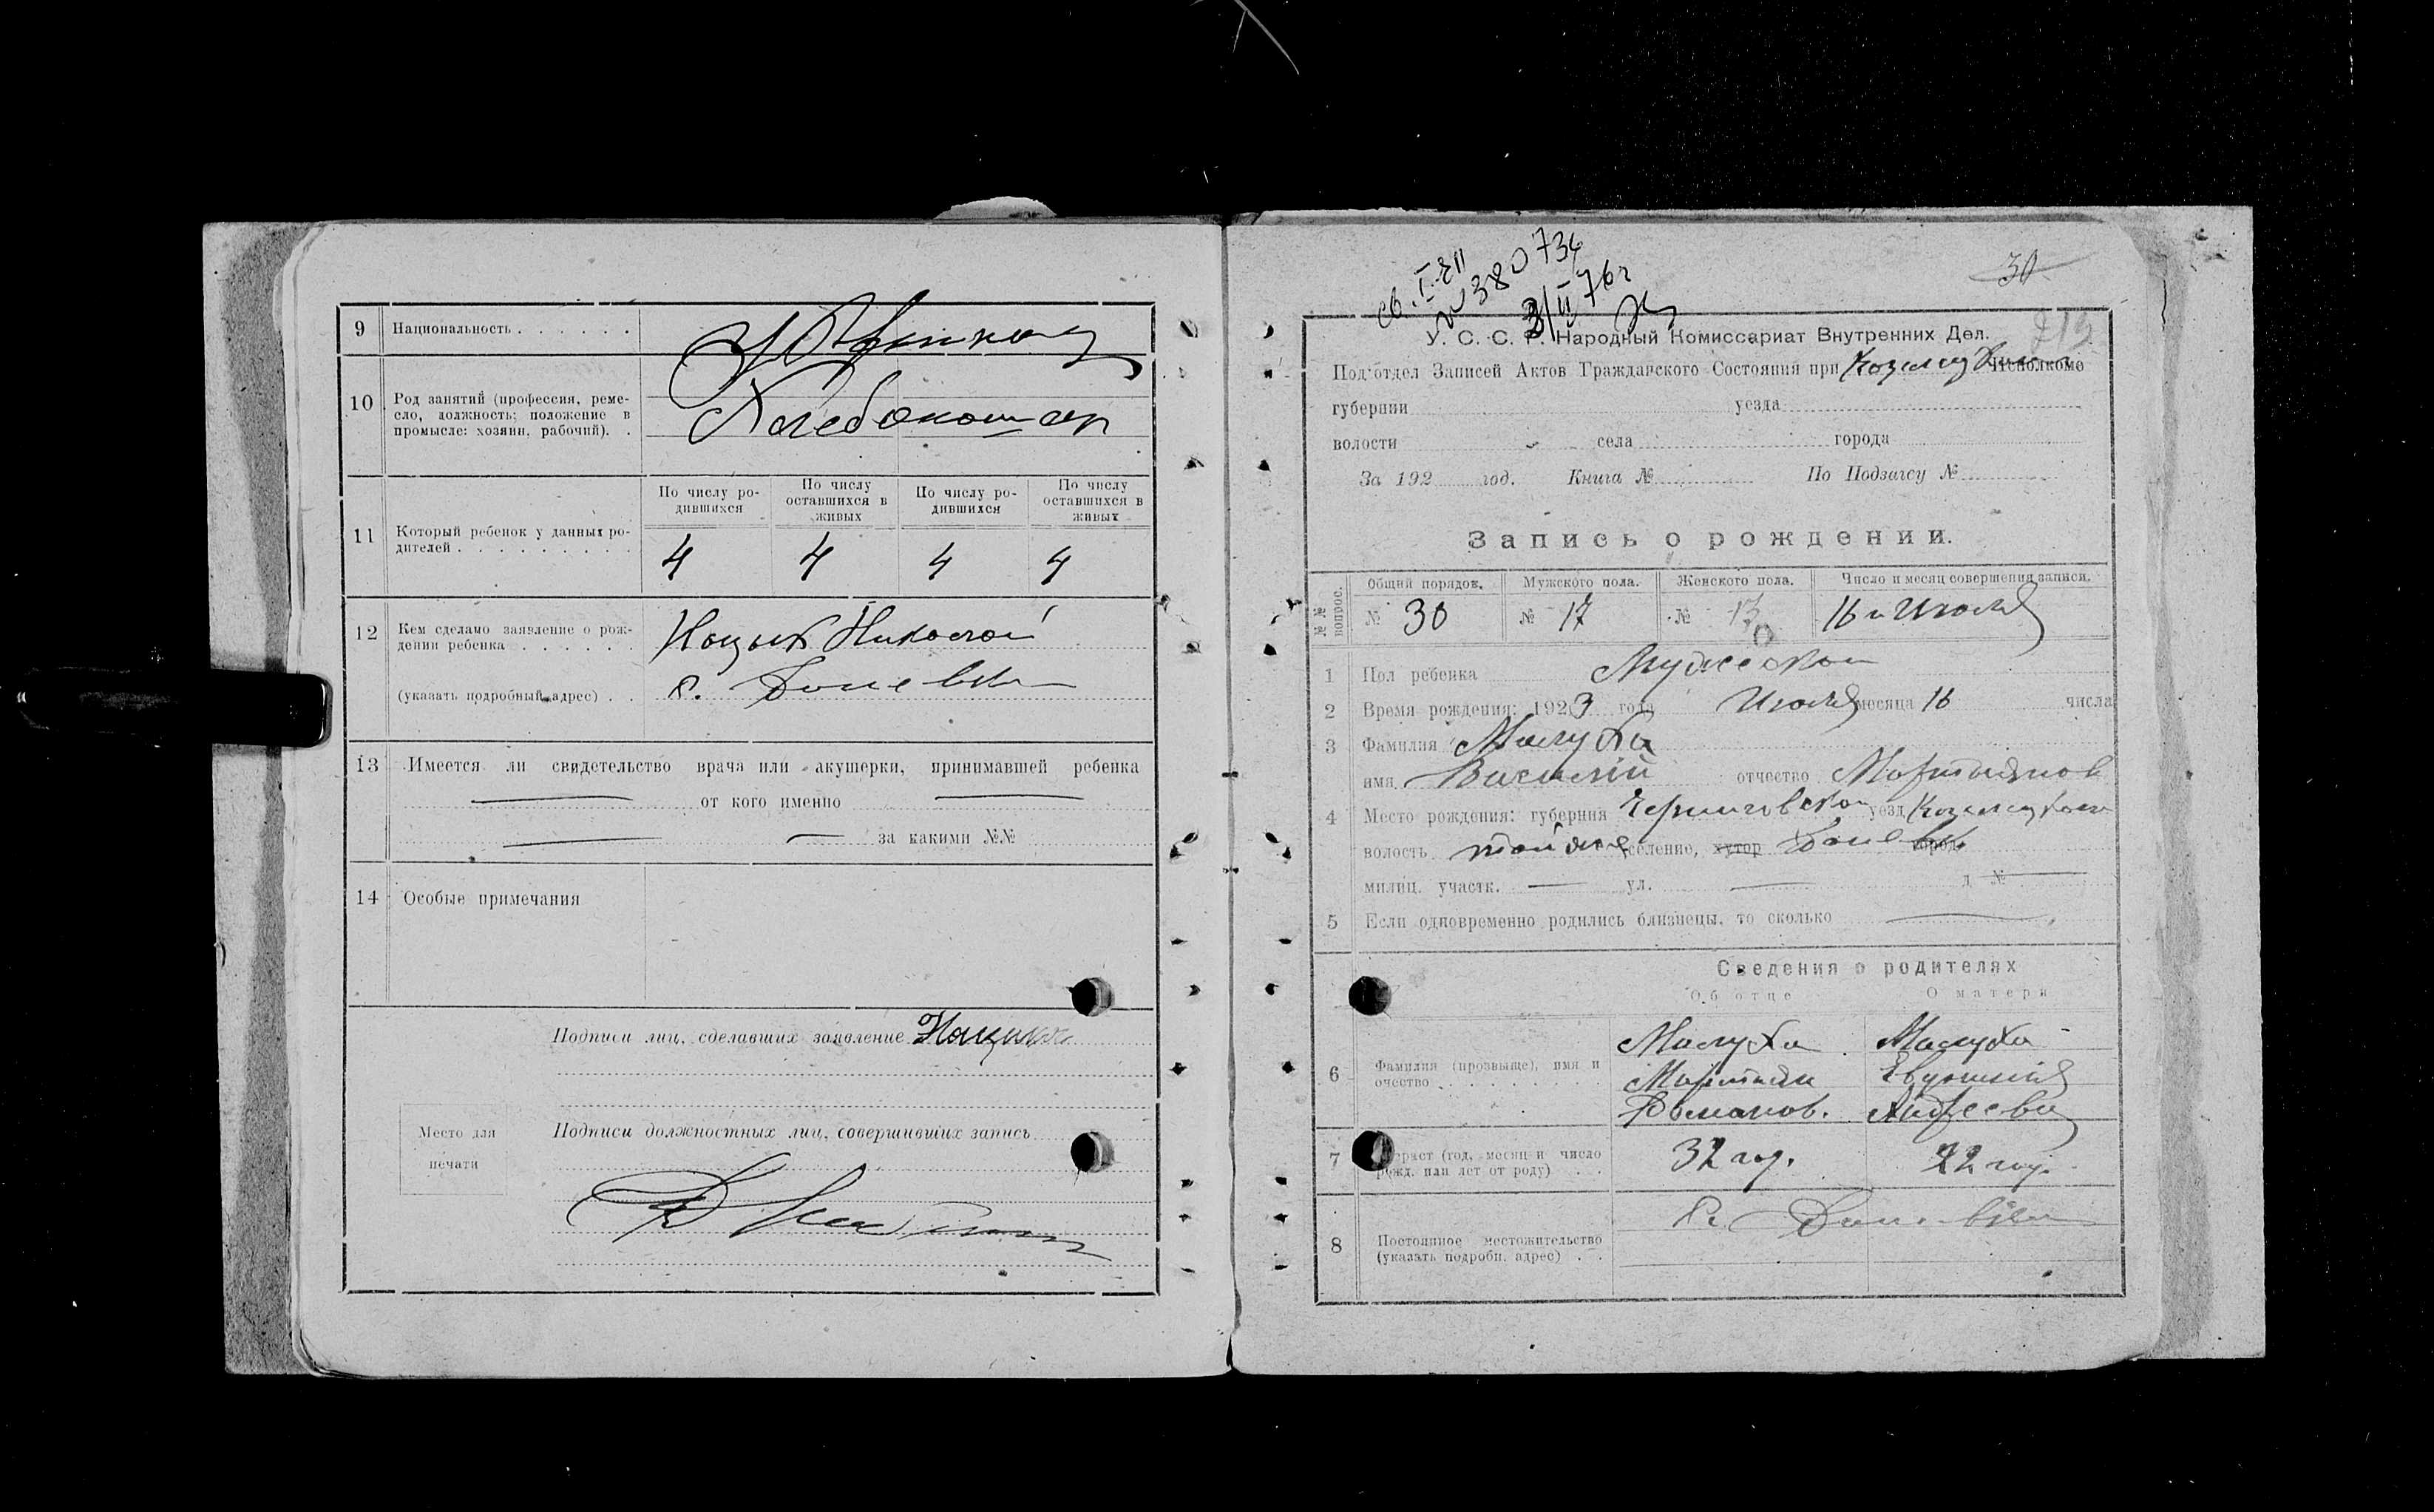 9 Национальность . . . . . . Украинец
10 Род занятий (профессия, реме-
сло, должность; положение в
промысле: хозяин, рабочий). . Хлебопашец
11 Который ребенок у данных ро-
дителей . . . . . . . . .
По числу ро-
дившихся
По числу
оставшихся в
живых
По числу ро-
дившихся
По числу
оставшихся в
живых
4 4 4 4
12 Кем сделано заявление о рож-
дении ребенка . . . . . . Николай
(указать подробный адрес) . . с.
13 Имеется ли свидетельство врача или акушерки, принимавшей ребенка
от кого именно
за какими №№
14 Особые примечания
Подписи лиц, сделавших заявление
Место для
печати
Подписи должностных лиц, совершивших запись
св. I-ЕП
№ 380734
3/II 76г
30
У. С. С. Р. Народный Комиссариат Внутренних Дел.
Под'отдел Записей Актов Гражданского Состояния при Исполкоме
губернии уезда
волости села города
За 192 год. Книга № По Подзагсу №
Запись о рождении.
№ № вопрос.
Общий порядок. Мужского пола. Женского пола. Число и месяц совершения записи.
№ 30 № 17 № 13 16 Июля
1 Пол ребенка Мужской
2 Время рождения: 1923 года Июля месяца 16 числа
3 Фамилия Масуха
имя Василий отчество Мартиянов
4 Место рождения: губерния Черниговской уезд Козелецкой
волость той же селение, хутор город
милиц. участк. — ул. — д №—
5 Если одновременно родились близнецы, то сколько —
Сведения о родителях
Об отце О матери
6 Фамилия (прозвище), имя и
очество . . . . . . . . .
Масуха Масуха
Мартиян Евдокия
Романов. Андреева
7 Возраст (год, месяц и число
рожд. или лет от роду) . . 32 год. 22 год.
8 Постоянное местожительство
(указать подробн. адрес) . . С.